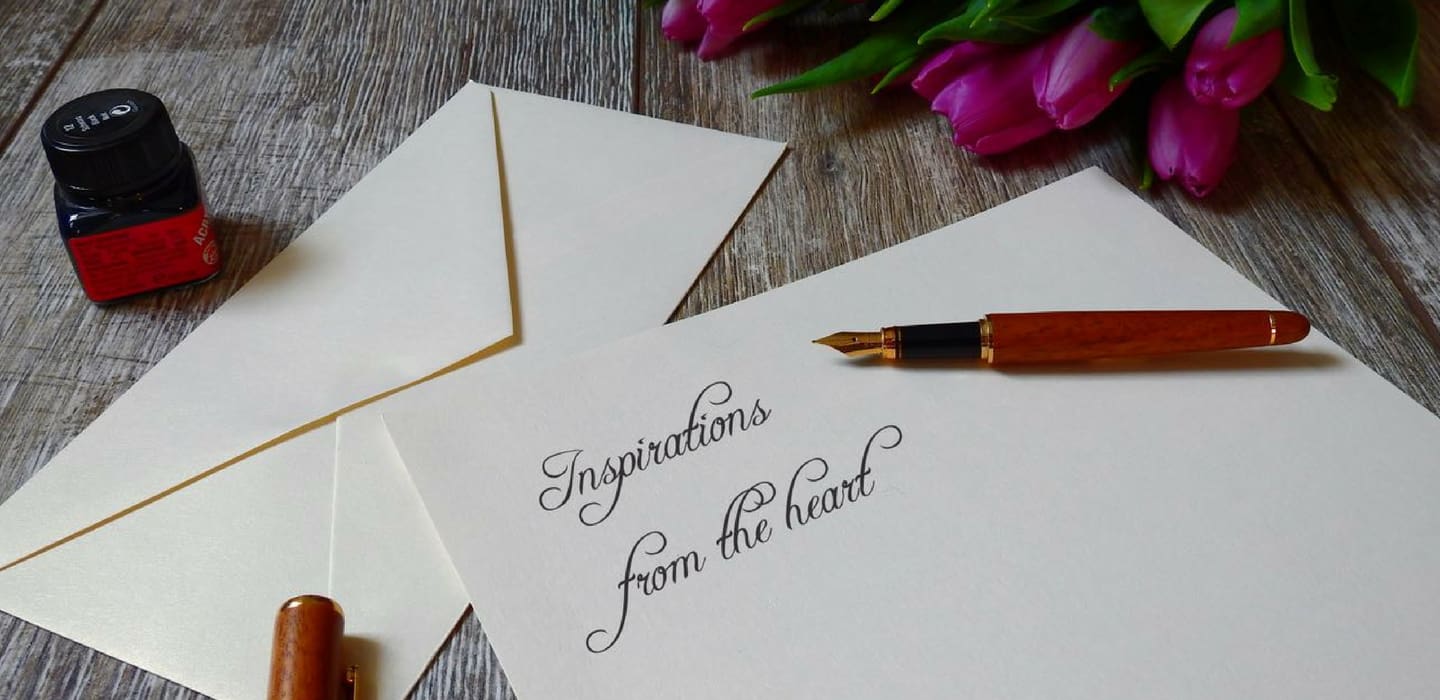 Inspirations
from the heart